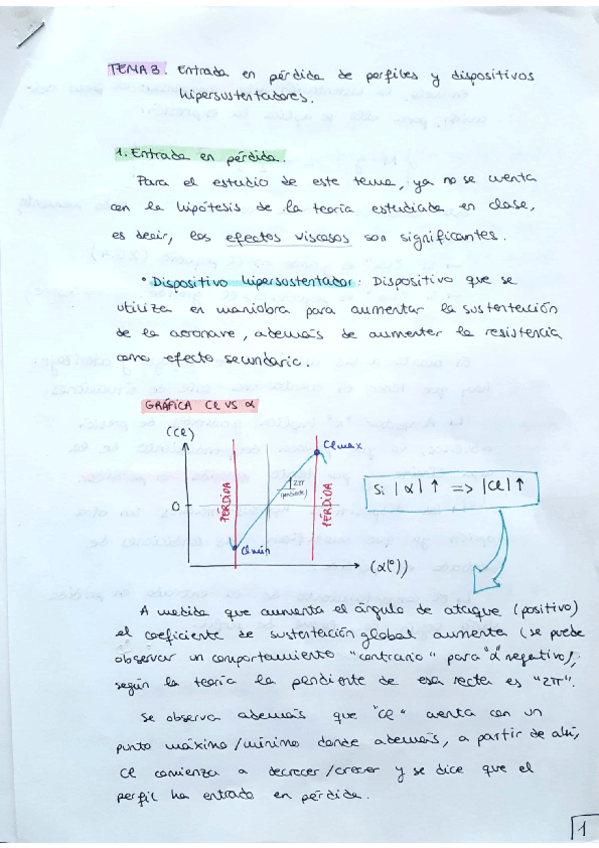 TEMA 3. Entrada en pérdida de perfiles y dispositivos
hipersustentadores.
1. Entrada en pérdida.
Para el estudio de este tema, ya no se cuenta
con la hipótesis de la teoría estudiada en clase,
es decir, los efectos viscosos son significantes.
• Dispositivo hipersustentador: Dispositivo que se
utiliza en maniobra para aumentar la sustentación
de la aeronave, además de aumentar la resistencia
como efecto secundario.
GRÁFICA Cl VS α
(Cl)
Cl max
2π
(pendiente)
PÉRDIDA
PÉRDIDA
0
Cl mín
(α(°))
Si |α| ↑ => |Cl| ↑
A medida que aumenta el ángulo de ataque (positivo)
el coeficiente de sustentación global aumenta (se puede
observar un comportamiento "contrario" para "α" negativo),
según la teoría la pendiente de esa recta es "2π".
Se observa además que "Cl" cuenta con un
punto máximo/mínimo donde además, a partir de ahí,
Cl comienza a decrecer/crecer y se dice que el
perfil ha entrado en pérdida.
1